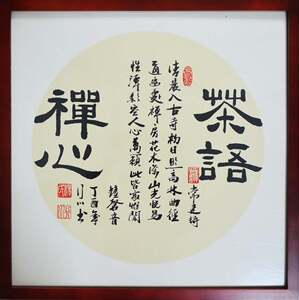 茶語
常建詩
清晨入古寺初日照高林曲徑
通幽處禪房花木深山光悅鳥
性潭影空人心萬籟此皆寂惟聞
鐘磬音
丁酉年
书
禪心